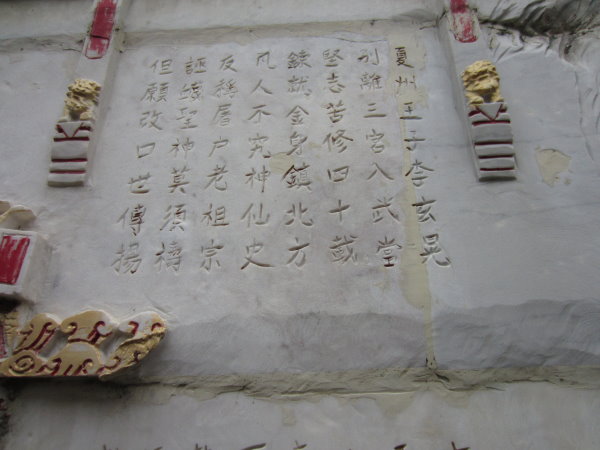 夏州王子李玄晃
别離三宮入武當
堅志苦修四十載
鍊就金身鎮北方
凡人不究神仙史
反稱屠户老祖宗
誣聖神莫須
但願改口世傳揚